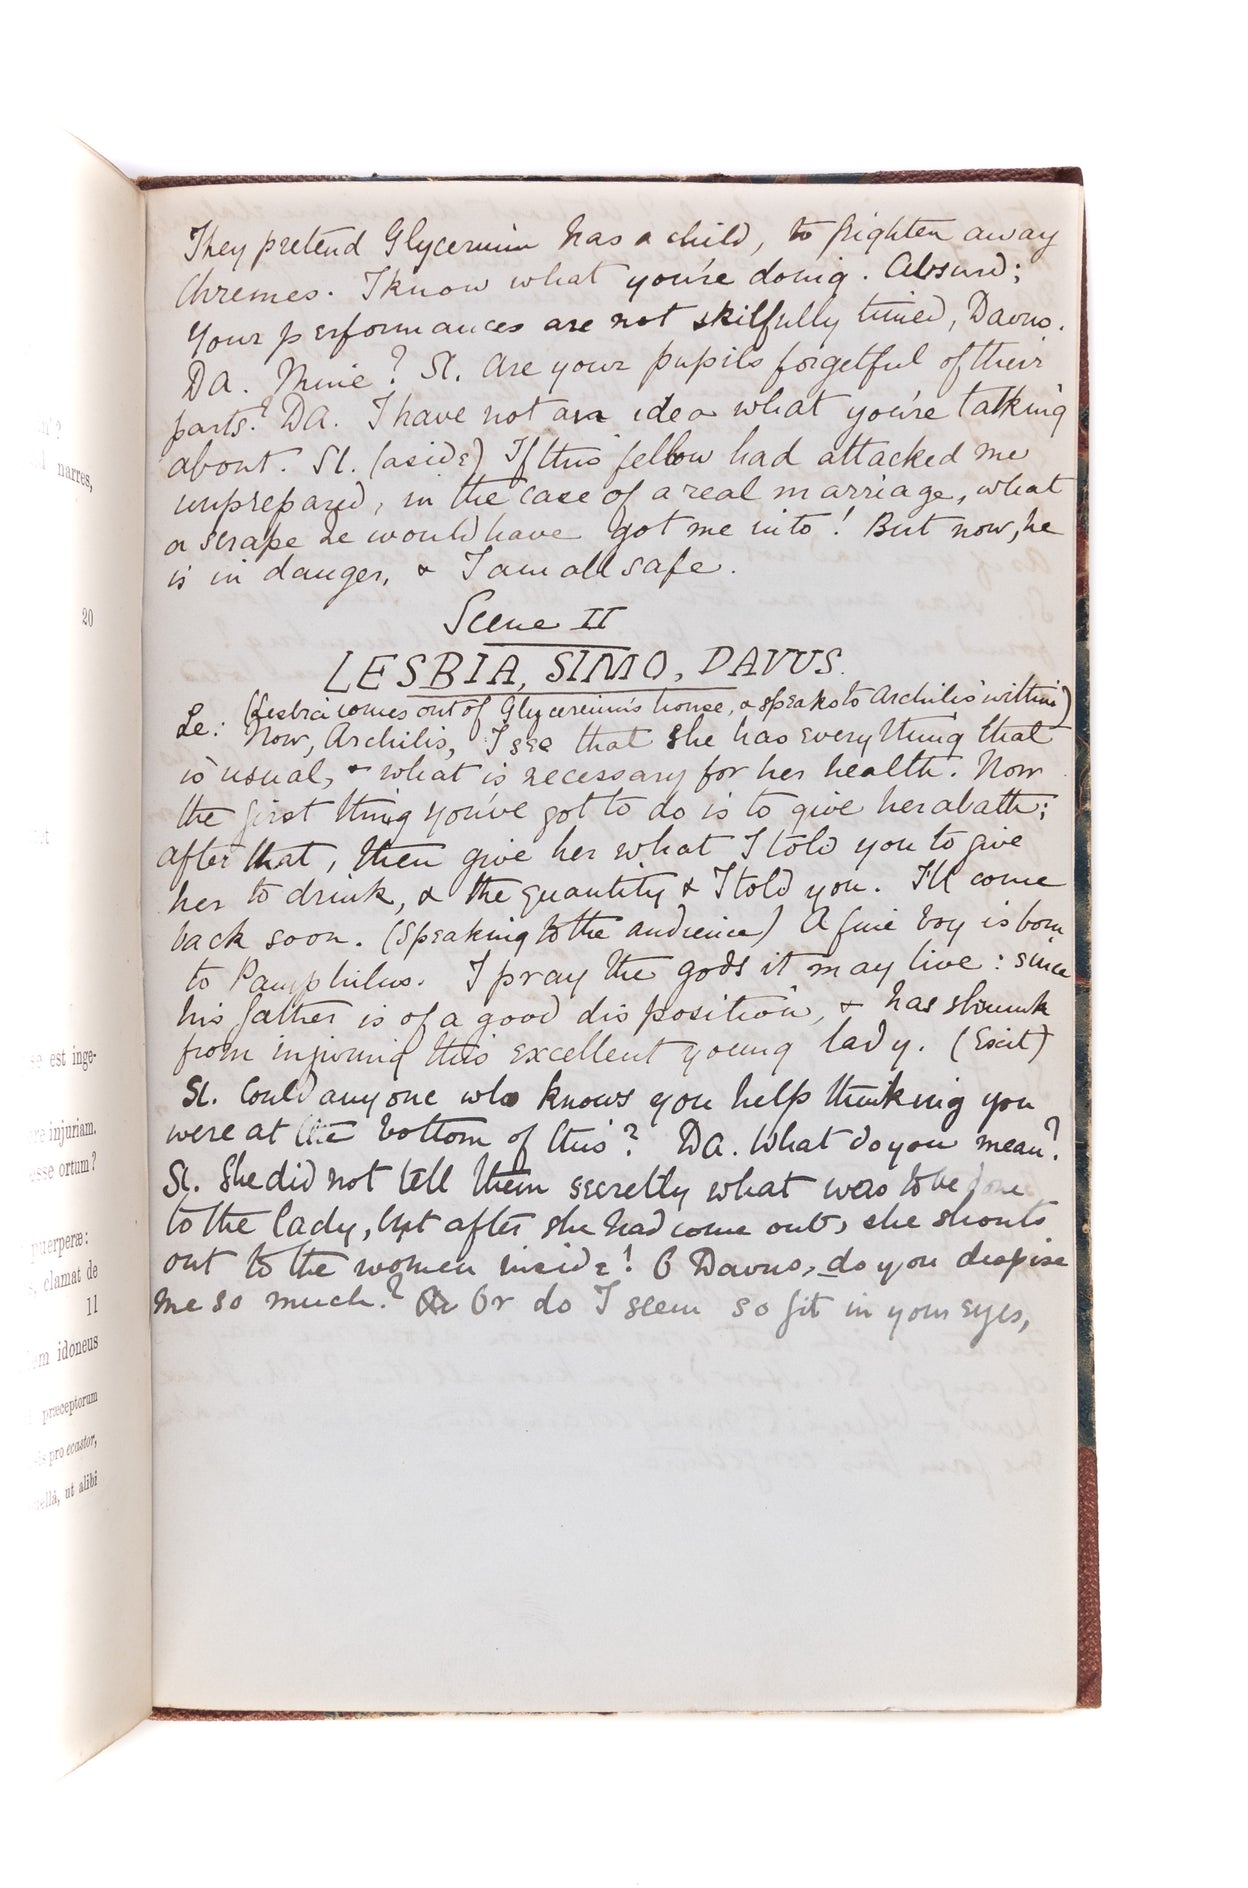 ur ?
narres,
20
est inge-
injuriam.
esse ortum?
puerperæ:
clamat de
11
idoneus
præceptorum
pro ecastor,
ut alibi
They pretend Glycerium has a child, to frighten away
Chremes. I know what you're doing. Absurd;
Your performances are not skilfully timed, Davus.
DA. Mine? SI. Are your pupils forgetful of their
parts? DA. I have not an idea what you're talking
about. SI. (aside) If this fellow had attacked me
unprepared, in the case of a real marriage, what
a scrape he would have got me into! But now, he
is in danger, & I am all safe.
Scene II
LESBIA, SIMO, DAVUS.
(Lesbia comes out of Glycerium's house, & speaks to Archilis within)
Le: Now, Archilis, I see that she has everything that
is usual, & what is necessary for her health. Now
the first thing you've got to do is to give her a bath;
after that, then give her what I told you to give
her to drink, & the quantity & I told you. I'll come
back soon. (Speaking to the audience) A fine boy is born
to Pamphilus. I pray the gods it may live: since
his father is of a good disposition, & has shrunk
from injuring this excellent young lady. (Exit)
SI. Could anyone who knows you help thinking you
were at the bottom of this? DA. What do you mean?
SI. She did not tell them secretly what was to be done
to the lady, but after she had come out, she shouts
out to the women inside! O Davus, do you despise
me so much? Or do I seem so fit in your eyes,